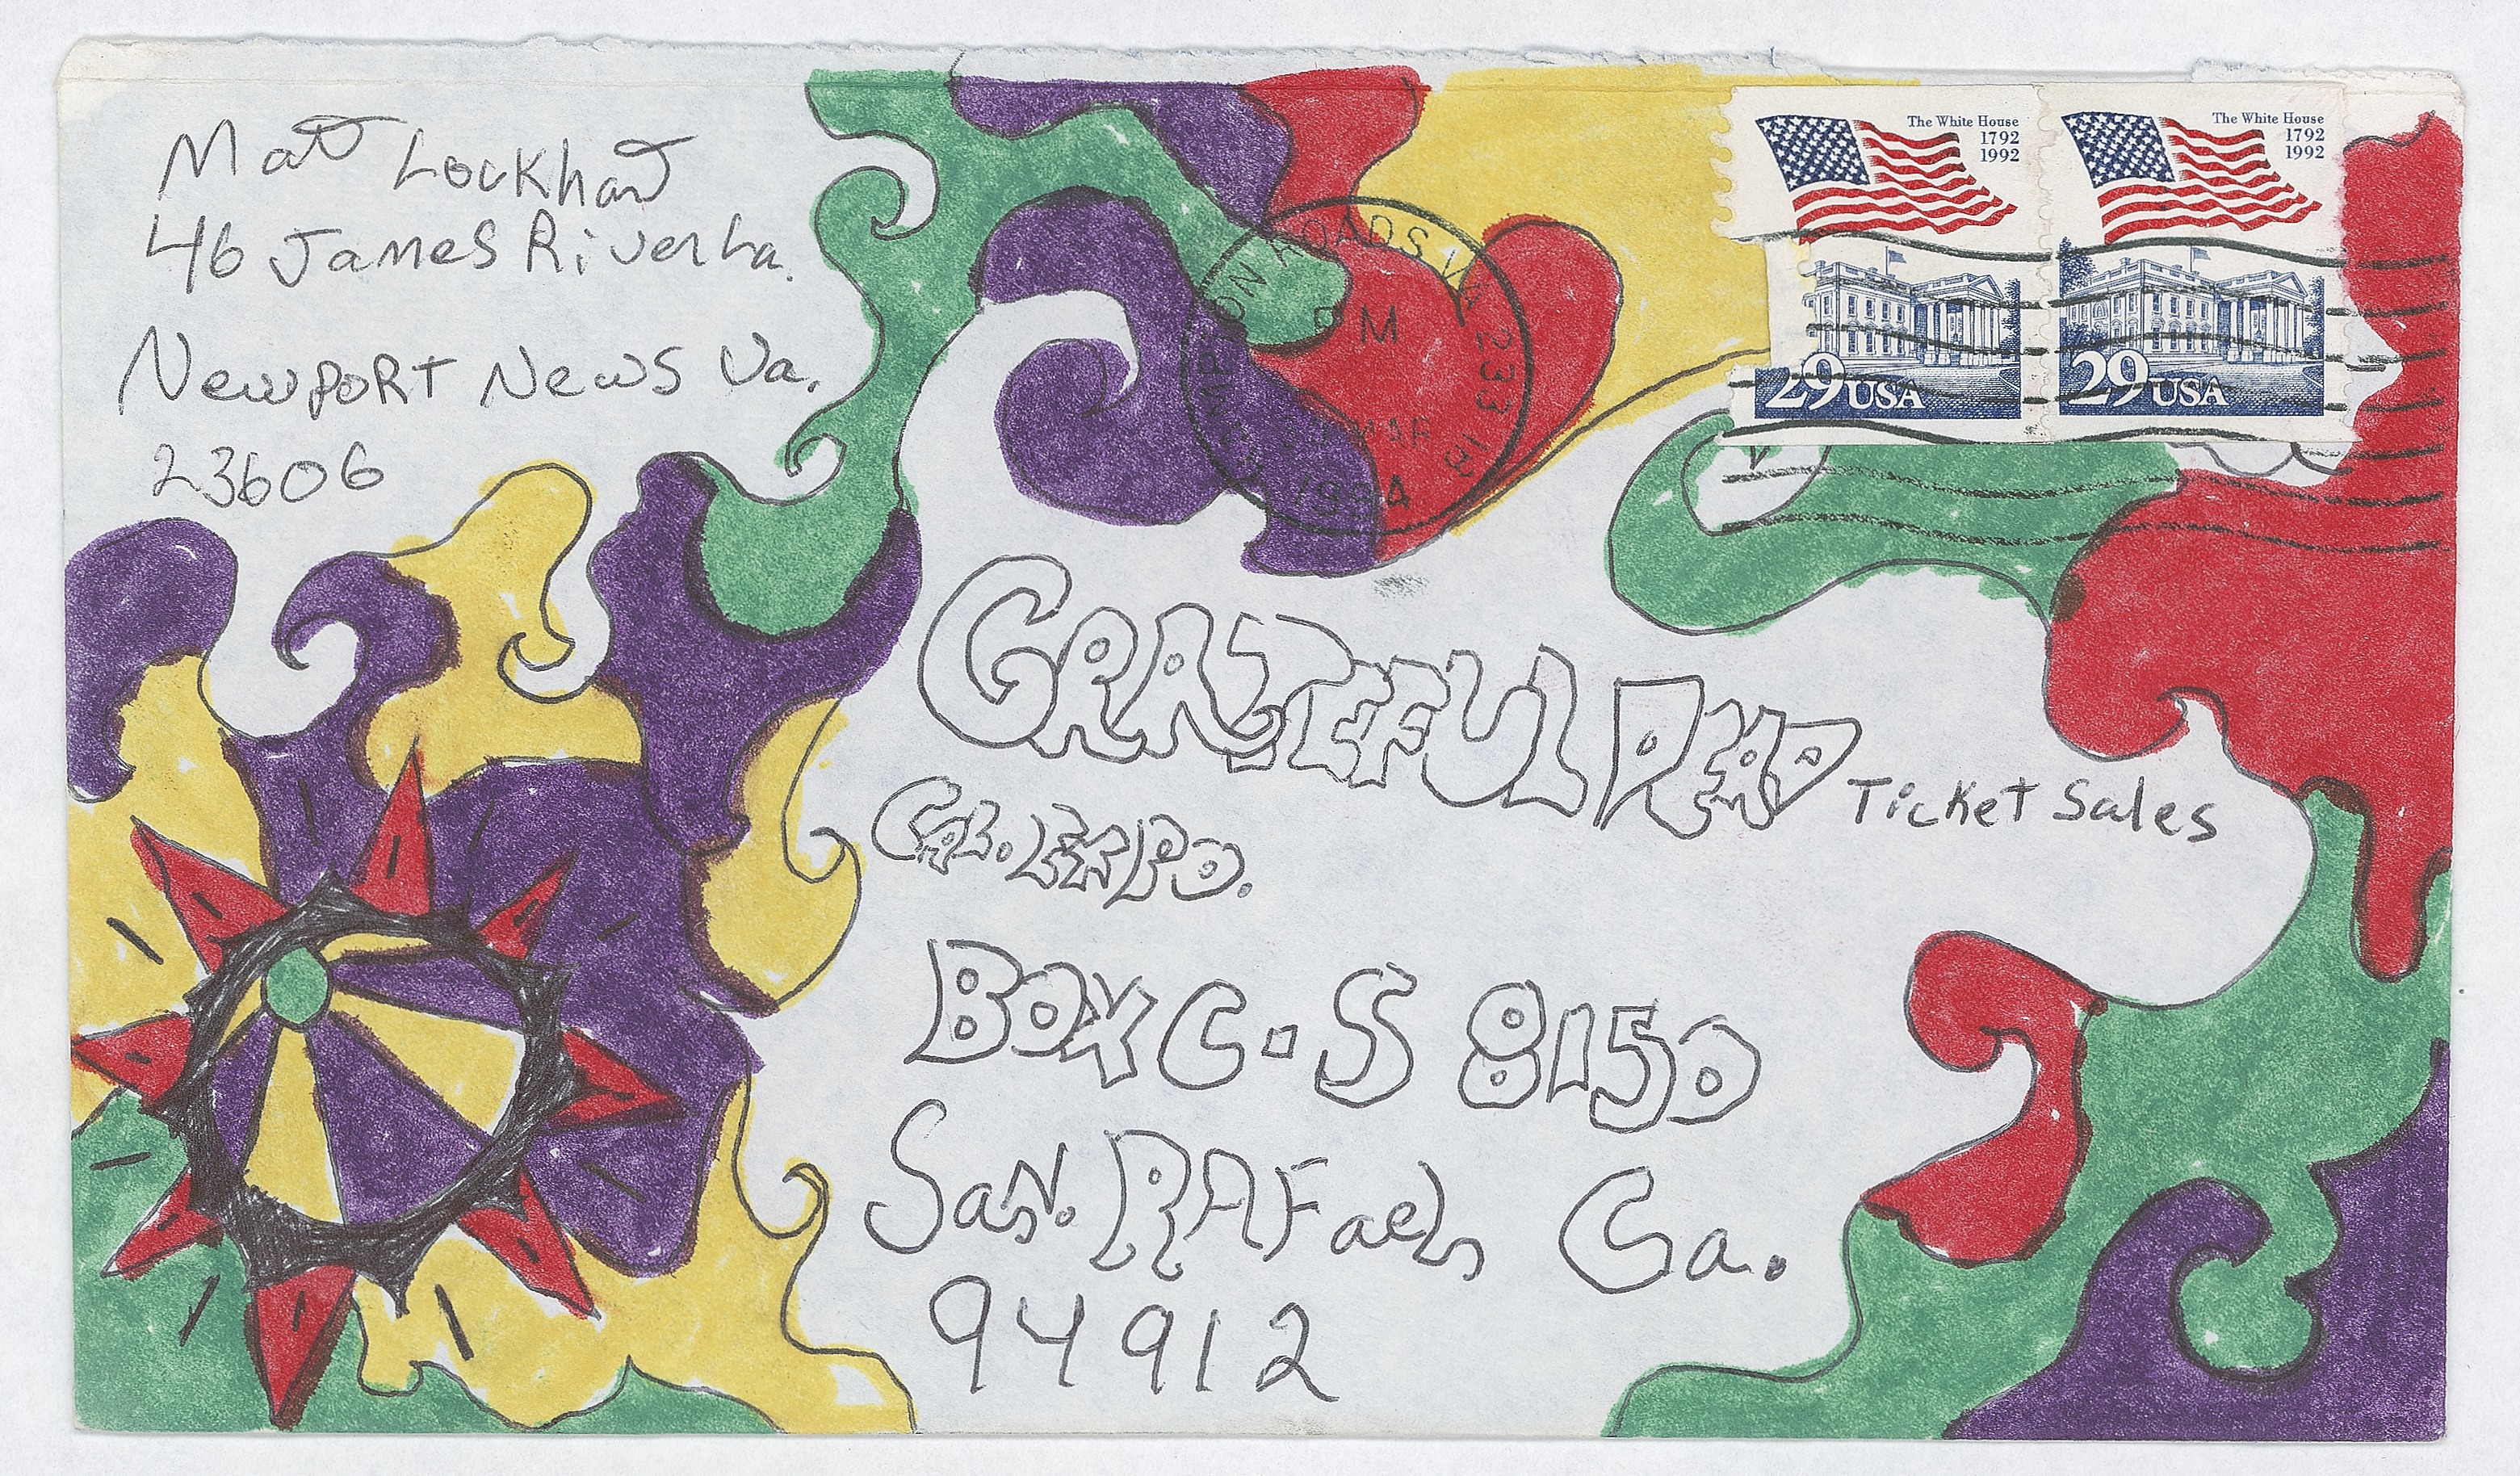 Matt Lockhart
46 James River La.
Newport News Va.
23606
The White House
1792
1992
29 USA
The White House
1792
1992
29 USA
HAMPTON ROADS VA 233
PM
MAR
1994
GRATEFUL DEAD Ticket Sales
CAL. EXPO.
BOX C-S 8150
San. RAFael, Ca.
94912